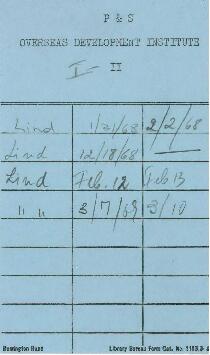 P & S
OVERSEAS DEVELOPMENT INSTITUTE
I II
Lind 1/31/68 2/2/68
Lind 12/18/68 —
Lind Feb. 12 Feb 13
" " 3/7/69 3/10
Remington Rand Library Bureau Form Cat. No. 1183.3